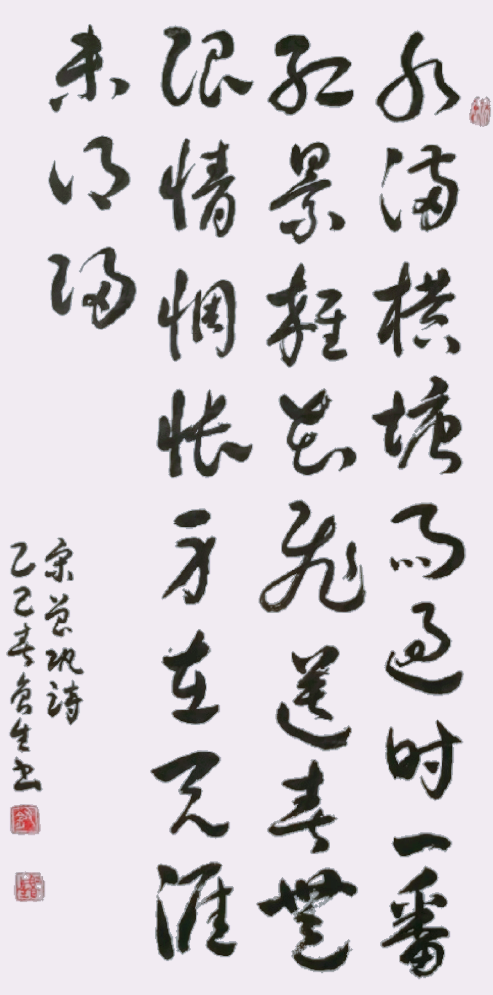 水满横塘雨过时一番
红景雜花飛送春無
限情惆怅身在天涯
未得归
宋曾巩詩
乙巳春生书